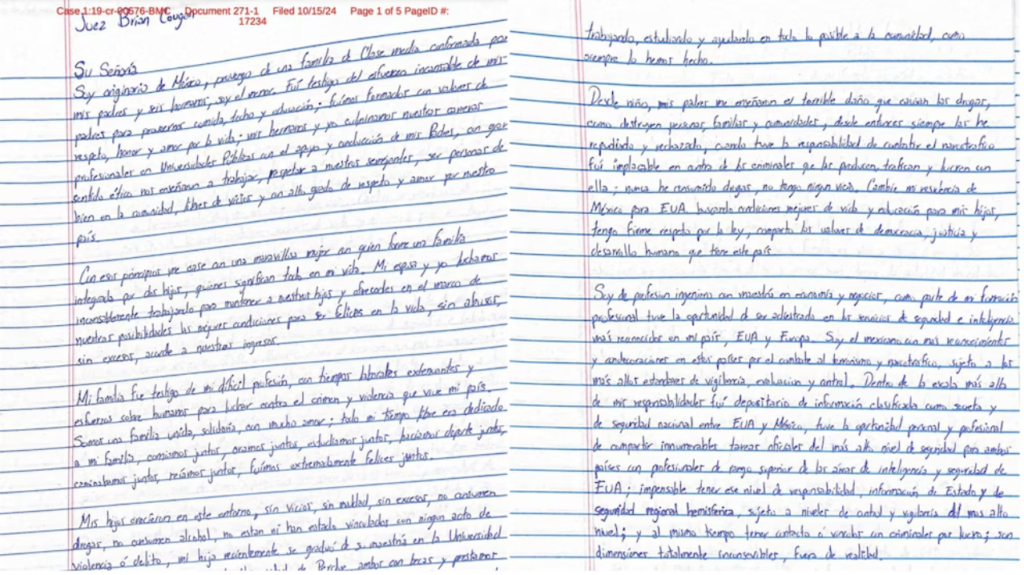 Case 1:19-cr-00576-BMC Document 271-1 Filed 10/15/24 Page 1 of 5 PageID #:
17234
Juez Brian Cougan
Su Señoría
Soy originario de México, provengo de una familia de Clase media conformada por
mis padres y seis hermanos, soy el menor. Fui testigo del esfuerzo incansable de mis
padres para proveernos comida, techo y educación; fuimos formados con valores de
respeto, honor y amor por la vida; mis hermanos y yo culminamos nuestras carreras
profesionales en Universidades Públicas con el apoyo y conducción de mis Padres, con gran
sentido ético nos enseñaron a trabajar, respetar a nuestros semejantes, ser personas de
bien en la comunidad, libres de vicios y con alto grado de respeto y amor por nuestro
país.
Con esos principios me case con una maravillosa mujer con quien forme una familia
integrada por dos hijos, quienes significan todo en mi vida. Mi esposa y yo luchamos
incansablemente trabajando para mantener a nuestros hijos y ofrecerles en el marco de
nuestras posibilidades las mejores condiciones para ser felices en la vida, sin abusos,
sin excesos, acorde a nuestros ingresos.
Mi familia fue testigo de mi difícil profesión, con tiempos laborales extenuantes y
esfuerzos sobre humanos para luchar contra el crimen y violencia que vive mi país.
Somos una familia unida, solidaria, con mucho amor; todo mi tiempo libre era dedicado
a mi familia, comíamos juntos, oramos juntos, estudiamos juntos, hacíamos deporte juntos,
caminabamos juntos, reíamos juntos, fuimos extremadamente felices juntos.
Mis hijos crecieron en este entorno, sin vicios, sin maldad, sin excesos, no consumen
drogas, no consumen alcohol, no estan ni han estado vinculados con ningun acto de
violencia ó delito, mi hija recientemente se graduó de su maestría en la Universidad
de Purdue ambos con becas y prestamos
trabajando, estudiando y ayudando en todo lo posible a la comunidad, como
siempre lo hemos hecho.
Desde niño, mis padres me enseñaron el terrible daño que causan las drogas,
como destruyen personas, familias y comunidades, desde entonces siempre las he
repudiado y rechazado, cuando tuve la responsabilidad de combatir el narcotrafico
fui implacable en contra de los criminales que las producen, trafican y lucran con
ella; nunca he consumido drogas, no tengo ningun vicio. Cambie mi residencia de
México para EUA buscando condiciones mejores de vida y educación para mis hijos,
tengo firme respeto por la ley, comparto los valores de democracia, justicia y
desarrollo humano que tiene este país.
Soy de profesion ingeniero con maestría en economía y negocios, como parte de mi formación
profesional tuve la oportunidad de ser adiestrado en los servicios de seguridad e inteligencia
más reconocidos en mi país, EUA y Europa. Soy el mexicano con mas reconocimientos
y condecoraciones en estos países por el combate al terrorismo y narcotrafico, sujeto a los
más altos estandares de vigilancia, evaluacion y control. Dentro de la escala más alta
de mis responsabilidades fui depositario de información clasificada como secreta y
de seguridad nacional entre EUA y México, tuve la oportunidad personal y profesional
de compartir innumerables tareas oficiales del más alto nivel de seguridad para ambos
países con profesionales de rango superior de las áreas de inteligencia y seguridad de
EUA; impensible tener ese nivel de responsabilidad, información de Estado y de
seguridad regional hemisferica, sujeto a niveles de control y vigilancia del mas alto
nivel; y al mismo tiempo tener contacto ó vinculos con criminales por lucro; son
dimensiones totalmente inconcebibles, fuera de realidad.